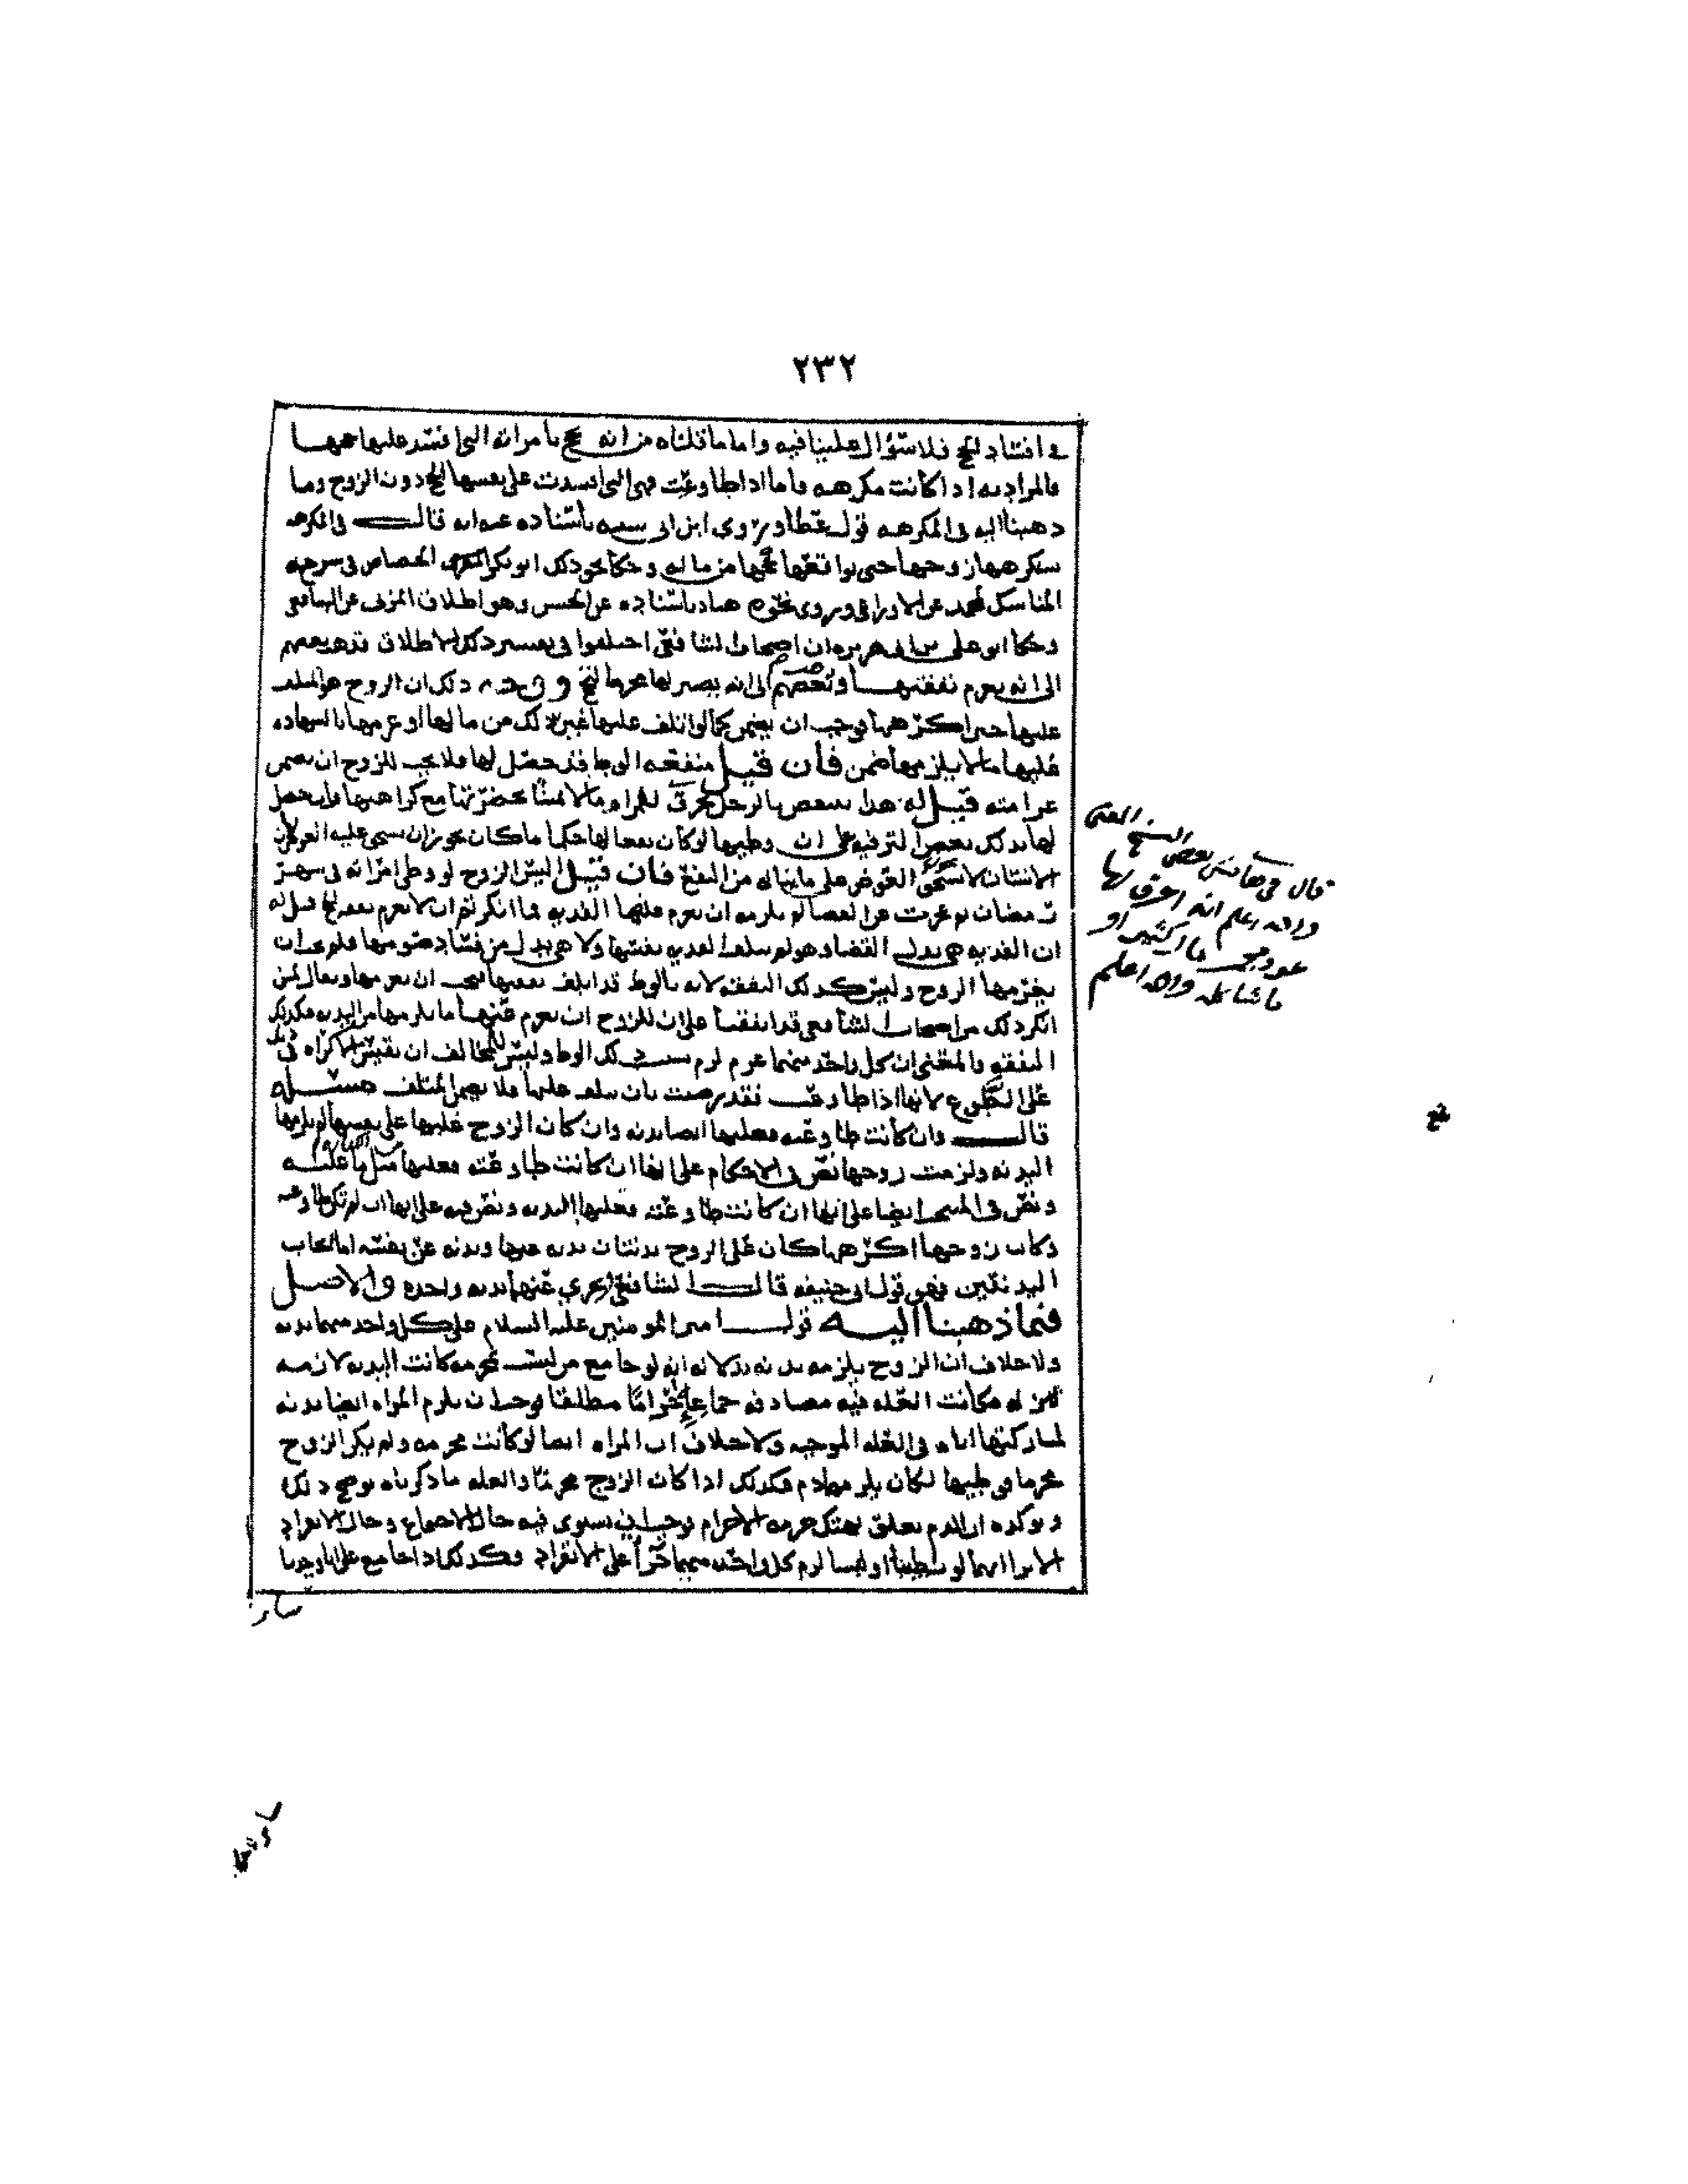 ٢٣٢
في افساد الحج فلا سؤال علينا فيه واما ما قلناه من انه يحج بامراته التي افسد عليها حجها
فالمراد به اذا كانت مكرهه فاما اذا طاوعت فهي التي افسدت على نفسها الحج دون الزوج وما
ذهبنا اليه في المكرهه قول عطا وروى ابن ابي شيبه باسناده عنه انه قال في المحرمه
يستكرهها زوجها حتى يواقعها يحجها من ماله وحكا نحو ذلك ابو بكر الجصاص في شرحه
المناسك لمحمد عن الاوزاعي وروى نحوه هناد باسناده عن الحسن وهو اطلاق المزني عن الشافعي
وحكا ابو علي بن ابي هريره ان اصحاب الشافعي اختلفوا في تفسير ذلك الاطلاق فذهب بعضهم
الى انه يغرم نفقتها وبعضهم الى انه يصير لها محرما للحج ووجه ذلك ان الزوج هو المتلف
عليها حين اكرهها فوجب ان يضمن كما لو اتلف عليها غير ذلك من مالها او غرمها بالشهاده
عليها مالا يلزمها ضمن فان قيل منفعه الوطئ قد حصل لها فلا يجب للزوج ان يضمن
غرامته قيل له هذا ينتقض بالرجل يحرق للمراه مالا
لها بذلك بعض الترفيه على ان وطيها لو كان نفعا لها حكما ما كان يجوز ان تستحق عليه العوض لان
الانسان لا يستحق العوض على ما يناله من النفع فان قيل اليس الزوج لو وطي امراته في شهر
رمضان ثم عجزت عن القضا لم يلزمه ان يغرم عليها الفديه فما انكرتم ان لا يغرم نفقه الحج قيل له
ان الفديه هي بدل القضا وهو لم يتلف الفديه بنفسها ولا هي بدل من فساد صومها فلم يجب ان
يغرمها الزوج وليس كذلك النفقه لانه بالوطئ قد اتلف نفقتها فيجب ان يغرمها ويقال لمن
انكر ذلك من اصحاب الشافعي قد اتفقنا على ان للزوج ان يغرم عنها ما يلزمها من البدنه فكذلك
النفقه والمعنى ان كل واحد منهما غرم لزم بسبب ذلك الوطئ وليس للمخالف ان يقيس الاكراه في ذلك
على التطوع لانها اذا طاوعت فقد رضيت بان يتلف عليها فلا يضمن المتلف مسئله
قال وان كانت طاوعته فعليها ايضا بدنه وان كان الزوج غلبها على نفسها لم يلزمها
البدنه ولزمت زوجها نص في الاحكام على انها ان كانت طاوعته فعليها مثل ما عليه
ونص في المنتخب ايضا على انها ان كانت طاوعته فعليها البدنه ونص فيه على انها ان لم تكن طاوعته
وكان زوجها اكرهها كان على الزوج بدنتان بدنه عنها وبدنه عن نفسه اما ايجاب
البدنتين فهو قول ابي حنيفه قال الشافعي يجزي عنهما بدنه واحده والاصل
فيما ذهبنا اليه قول امير المومنين عليه السلام على كل واحد منهما بدنه
ولا خلاف ان الزوج يلزمه بدنه بدلالة انه لو جامع من ليست محرمه كانت البدنه لازمه
له فكانت العله فيه مصادفه جماعه احراما مطلقا فوجب ان يلزم المراه ايضا بدنه
لمشاركتها اياه في العله الموجبه ولا خلاف ان المراه ايضا لو كانت محرمه ولم يكن الزوج
محرما فوطيها لكان يلزمها دم فكذلك اذا كان الزوج محرما والعله ما ذكرناه يوضح ذلك
ويوكده ان الدم تعلق بهتك حرمه الاحرام فوجب ان يستوى فيه حال الاجتماع وحال الانفراد
الا ترا انهما لو تطيبا او لبسا لزم كل واحد منهما كفاره على الانفراد وكذلك اذا جامع على انا وجدنا
سائر
قال في بعض
والله اعلم انه
والله اعلم